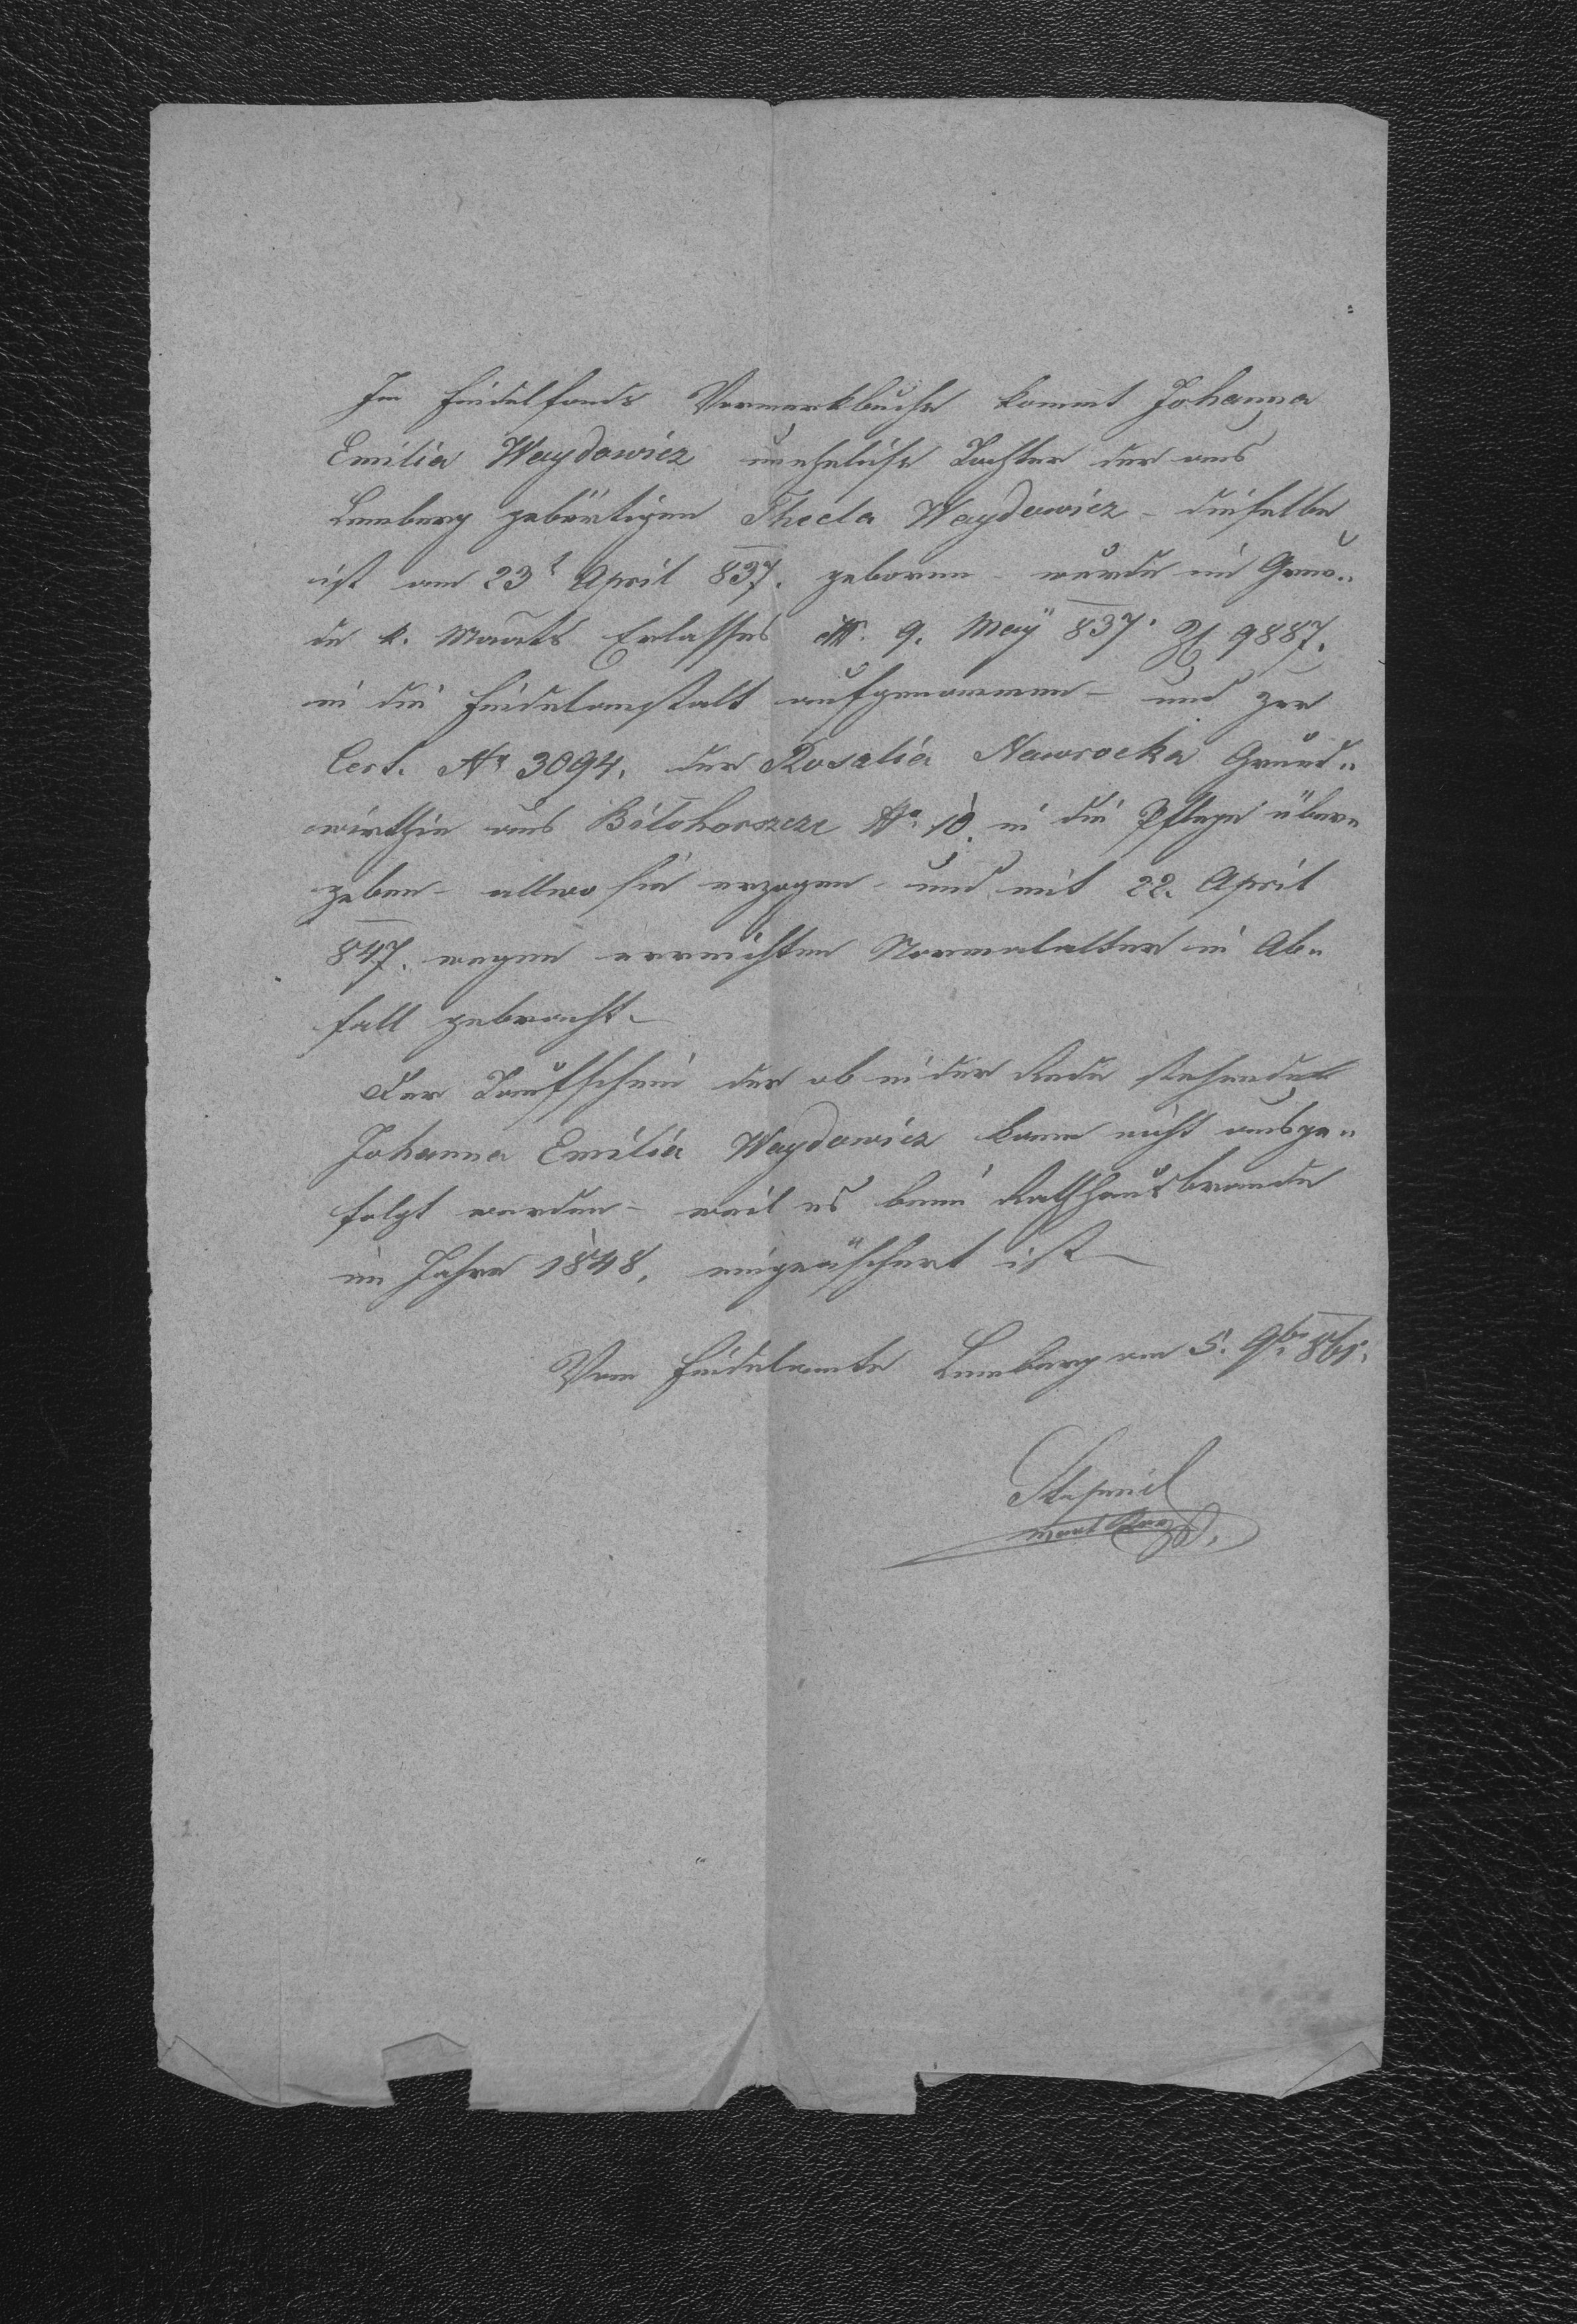 Im Findelfonds Vormerkbuche kommt Johanna
Emilia Waydowicz uneheliche Tochter der aus
Lemberg gebürtigen Thecla Waydowicz – dieselbe
ist am 23t April 837. geboren – wurde im Grun„
de k. Maats Erlasses 9. May 837. Zl 9887.
in die Findelanstalt aufgenommen – und zur
Cert. Nr 3094. der Rosalia Nawrocka Grund„
wirthin aus Bilohorszcze No 10. in die Pflege über„
geben – allwo sie erzogen – und mit 22. April
847. wegen erreichten Normalalter in Ab„
fall gebracht –
Der Taufschein der ob in der Rede stehenden
Johanna Emilia Waydowicz kann nicht ausge„
folgt werden – weil es beim Rathhausbrande
im Jahre 1848, eingeäschert ist –
Vom Findelamte Lemberg am 5. 9br 861.